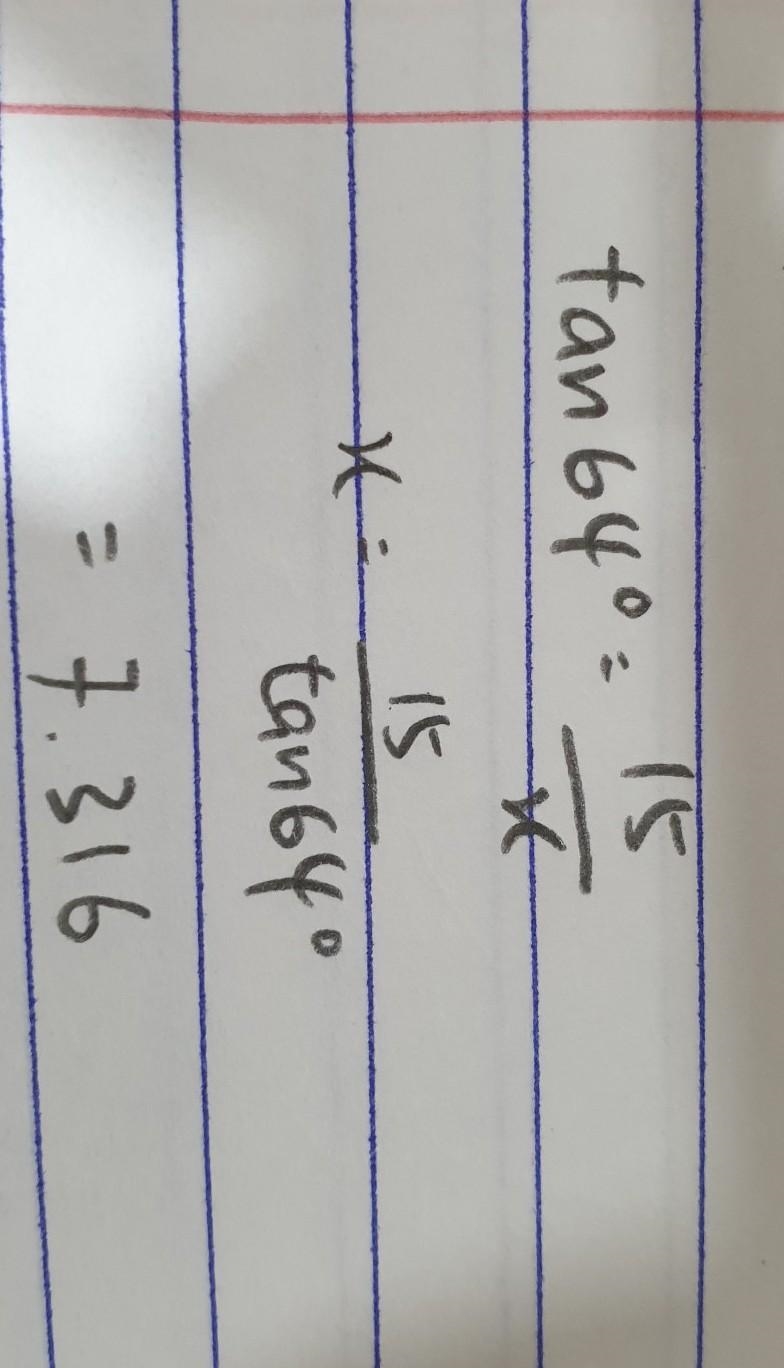 tan 64° = 15/x
x = 15/tan 64°
= 7.316